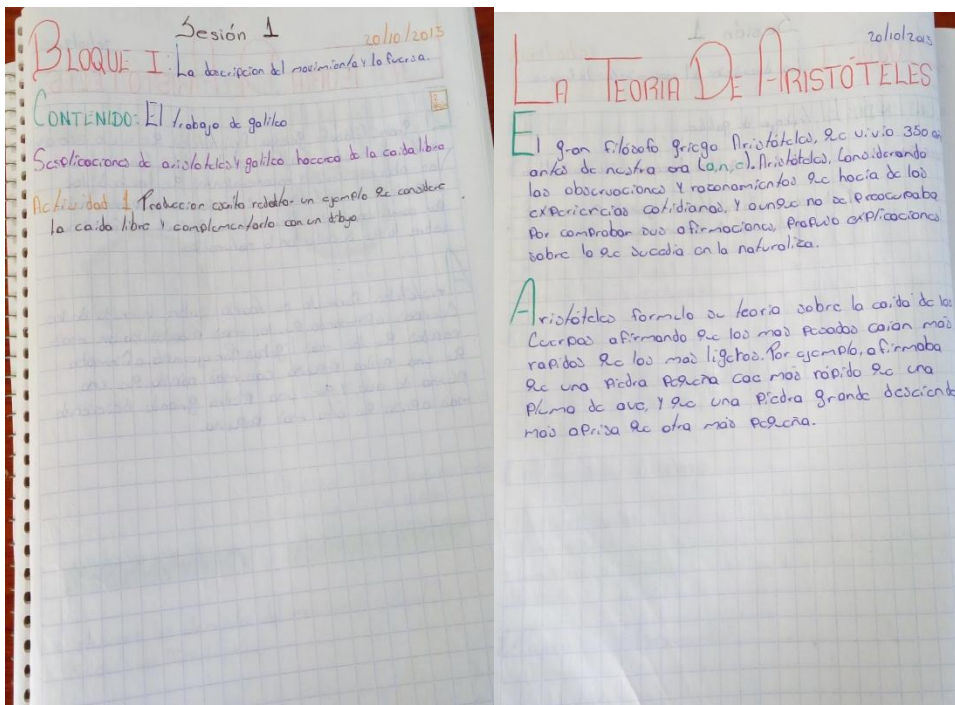 Sesión 1
20/10/2015
BLOQUE I: La descripcion del movimiento y la fuerza.
CONTENIDO: El trabajo de galileo
Sexplicaciones de aristoteles y galileo hacerca de la caida libre
Actividad 1 Produccion escrita redacta un ejemplo qe considere
la caida libre y complementarlo con un dibujo
20/10/2015
LA TEORIA DE ARISTÓTELES
El gran filósofo griego Aristóteles, qe vivio 350 a
antes de nuestra era (a,n,e). Aristóteles, Considerando
las observaciones y razonamientos qe hacia de las
experiencias cotidianas, y aunqe no se preocupaba
Por comprobar sus afirmaciones, Propuso explicaciones
sobre lo qe sucedia en la naturaliza.
Aristóteles formulo su teoria sobre la caida de los
Cuerpos afirmando qe los mas Pesados caian mas
rapidos qe los mas ligeros. Por ejemplo, afirmaba
qe una Piedra Peqeña cae mas rápido qe una
Pluma de ave, y qe una Piedra grande desciende
mas aprisa qe otra más Peqeña.